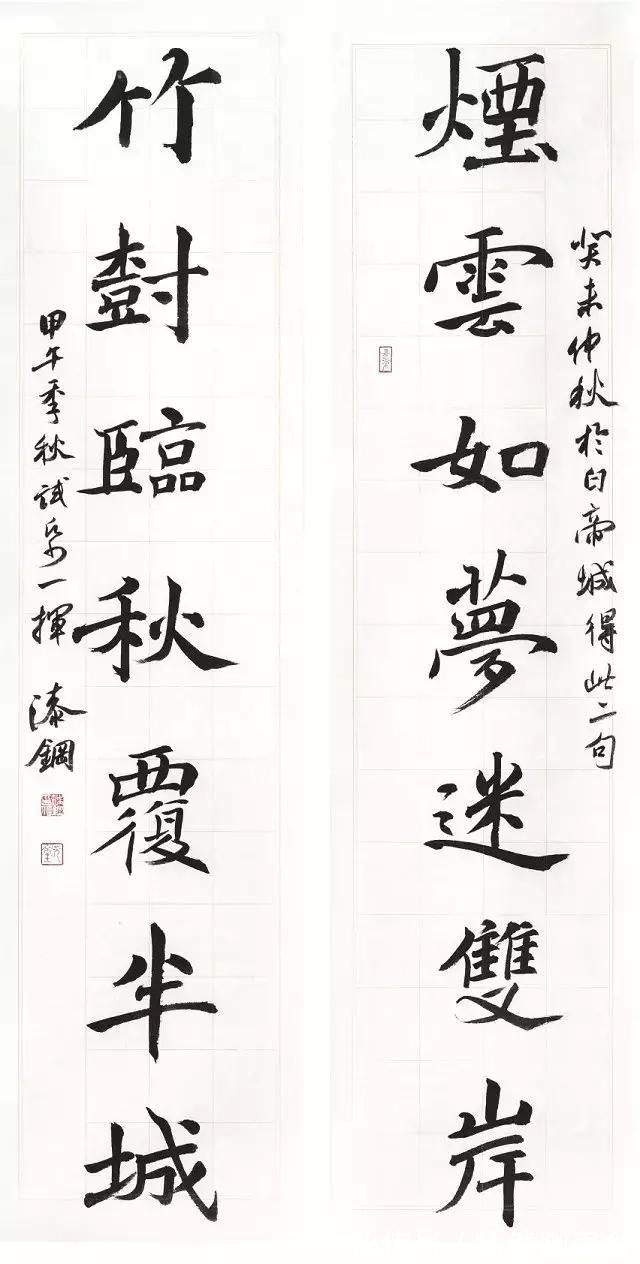 煙雲如夢迷雙岸
癸未仲秋於白帝城得此二句
竹樹臨秋覆半城
甲午季秋試紙一揮
漆鋼